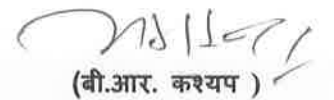 (बी.आर. कश्यप )